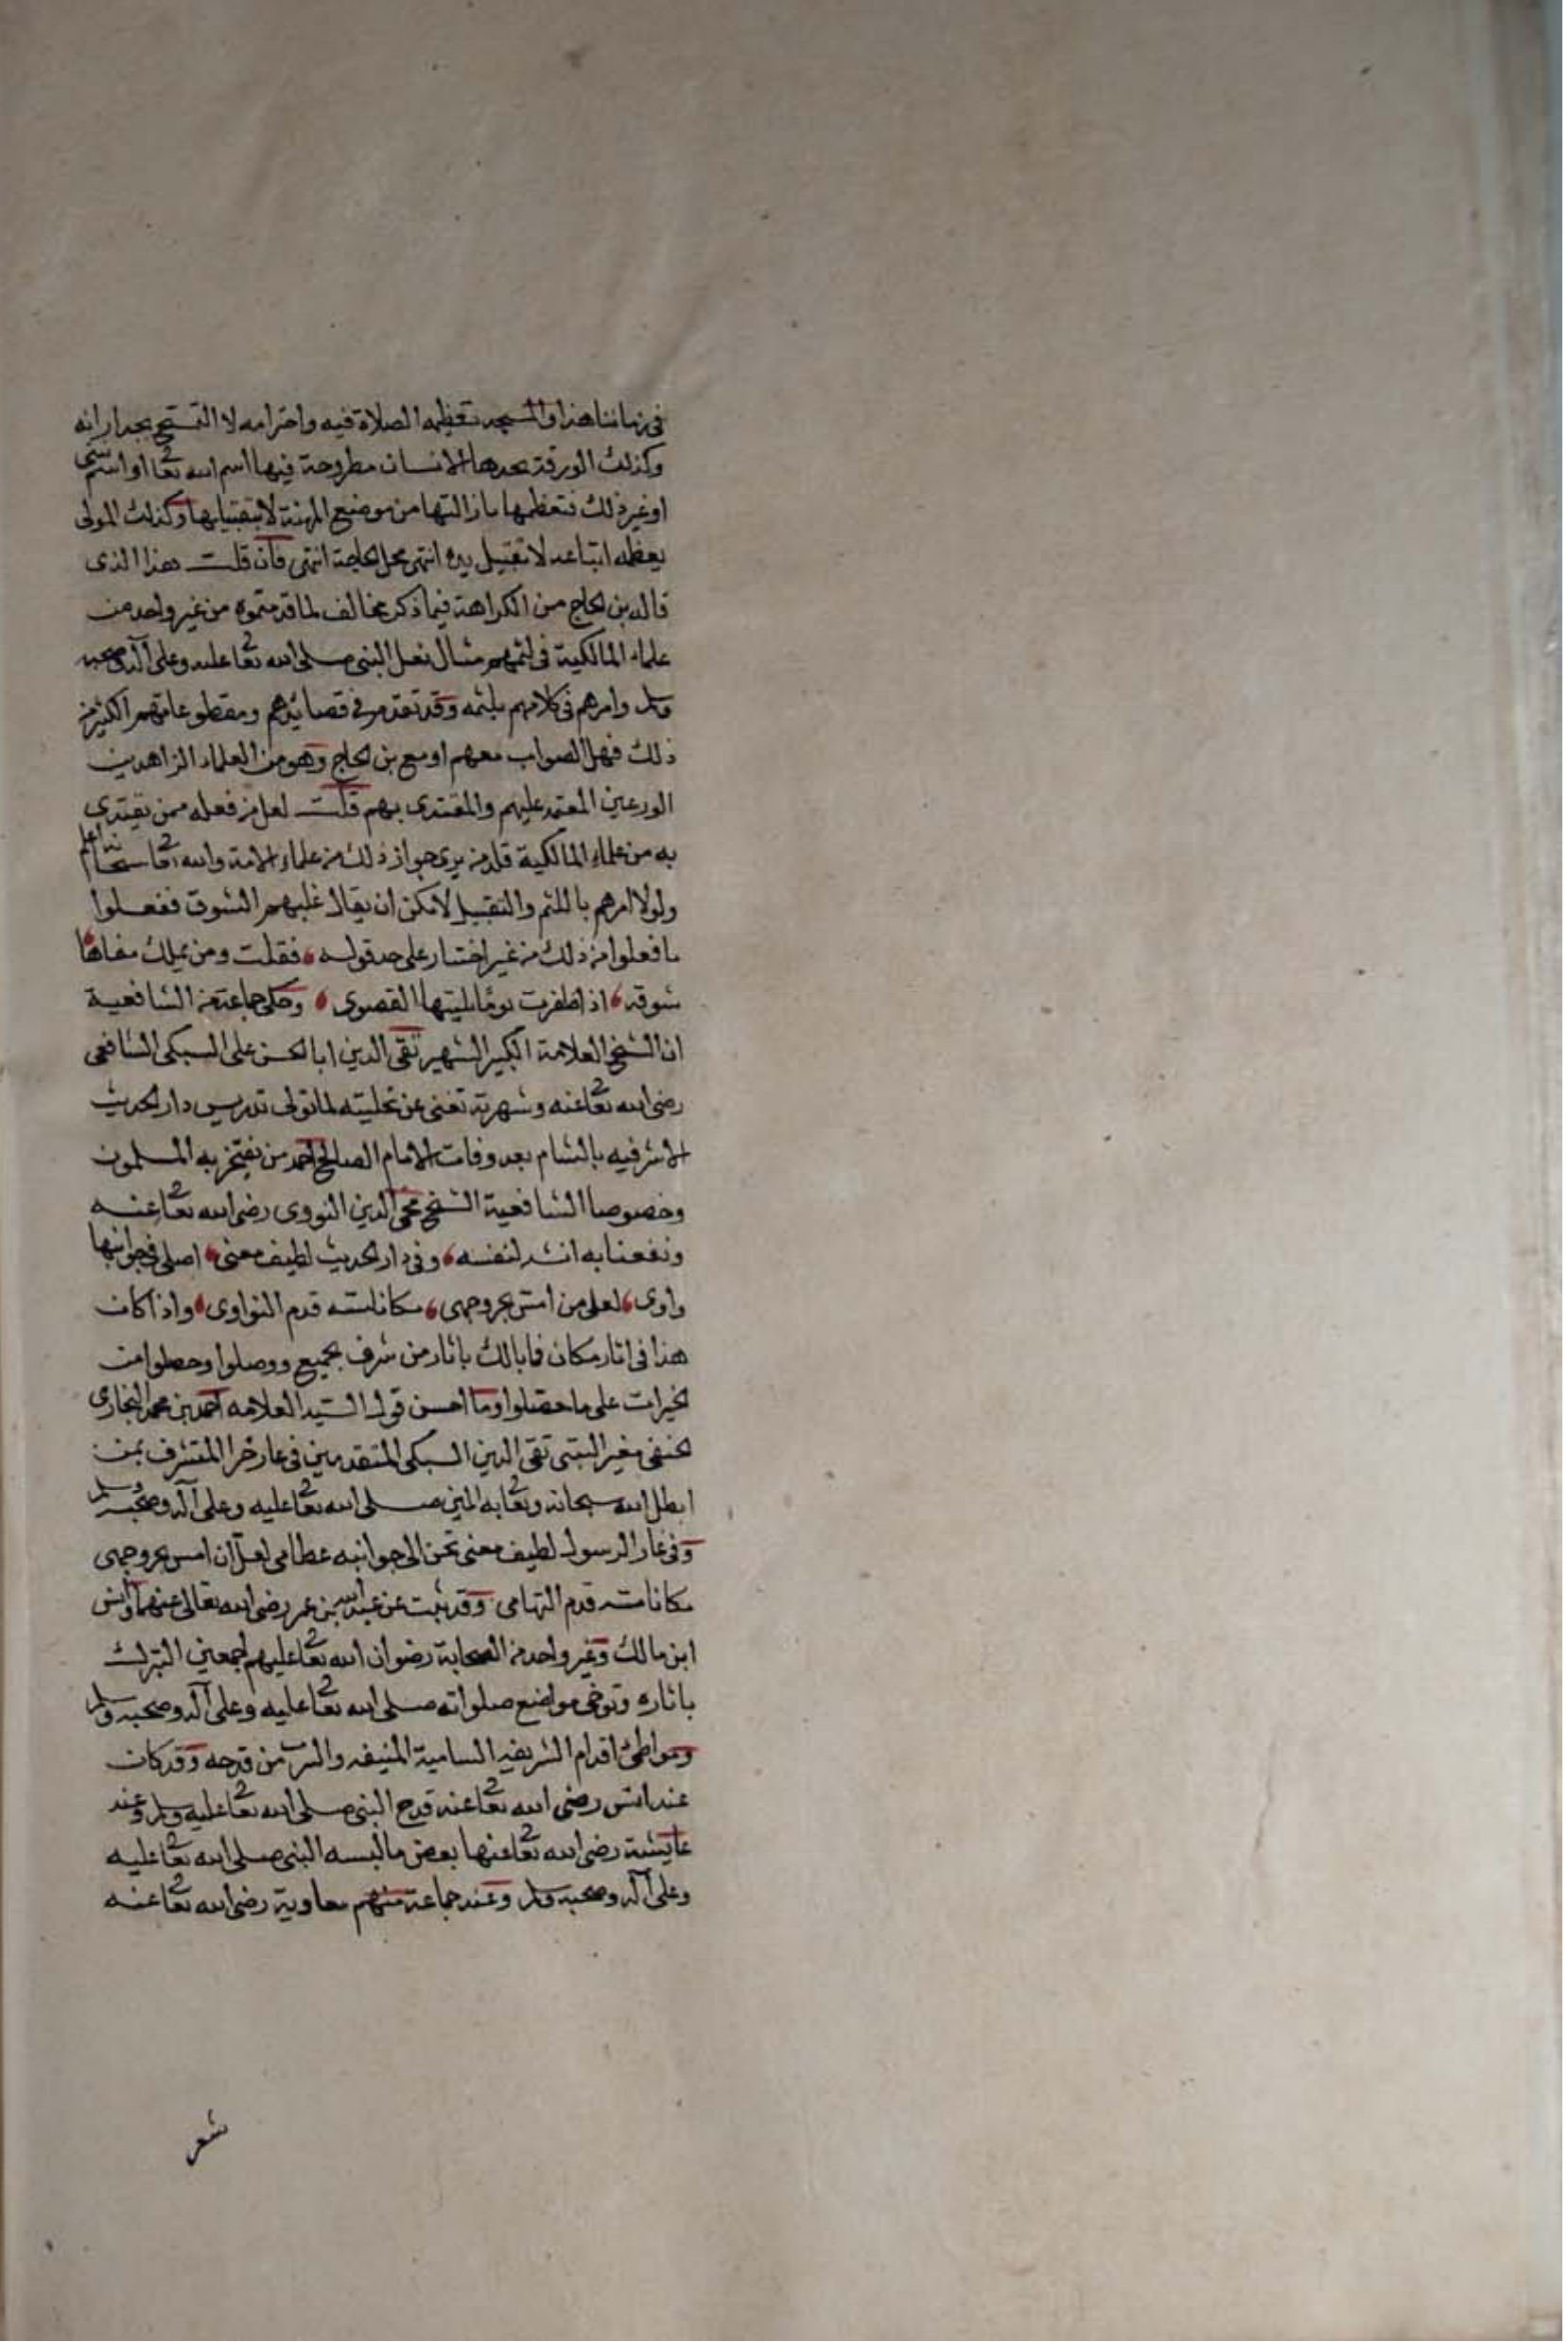 في زماننا هذا والمسجد تعظيمه الصلاة فيه واحترامه لا التمسح بجدارانه
وكذلك الورقة يجدها الانسان مطروحة فيها اسم الله تعا او اسم نبي
او غير ذلك فتعظمها بازالتها من موضع المهنة لا بتقبيلها وكذلك المولى
يعظمه اتباعه لا تقبيل يده انتهى محل الحاجة انتهى فان قلت هذا الذى
قاله بن الحاج من الكراهة فيما ذكر مخالف لما قدمتموه من غير واحد من
علماء المالكية في لثمهم مثال نعل النبي صلى الله تعا عليه وعلى آله وصحبه
وسلم وامرهم في كلامهم بلثمه وقد تقدم في قصائدهم ومقطوعاتهم الكثير من
ذلك فهل الصواب معهم او مع بن الحاج وهو من العلماء الزاهدين
الورعين المعتمد عليهم والمقتدى بهم قلت لعل من فعله ممن يقتدى
به من علماء المالكية قلد من يرى جواز ذلك من علماء الامة والله تعا سبحانه اعلم
ولولا امرهم باللثم والتقبيل لامكن ان يقال غلبهم الشوق ففعلوا
ما فعلوا من ذلك من غير اختيار على حد قوله فقلت ومن يملك شفاها
مشوقه اذا ظفرت يوما بليتها القصوى وحكى جماعة من الشافعية
ان الشيخ العلامة الكبير الشهير تقى الدين ابا الحسن على السبكى الشافعى
رضى الله تعا عنه وشهرته تغنى عن تحليته لما تولى تدريس دار الحديث
الاشرفيه بالشام بعد وفات الامام الصالح احد من يفتخر به المسلمون
وخصوصا الشافعية الشيخ محى الدين النووى رضى الله تعا عنه
ونفعنا به انشد لنفسه وفى دار الحديث لطيف معنى اصلى فى جوانبها
واوى لعلى من امس بحر وجهى مكانا مسه قدم النواوى واذا كان
هذا فى اثار مكان فما بالك باثار من شرف بجميع ووصلوا وحطوا من
الخيرات على ما حصلوا وما احسن قول السيد العلامه احمد بن محمد البخارى
الحنفى مغير البيتى تقى الدين السبكى المتقدمين فى غار حرا المتشرف بمن
ابطل الله سبحانه وتعا به المين صلى الله تعا عليه وعلى آله وصحبه وسلم
وفى غار الرسول لطيف معنى تحن الى جوانبه عظامى لعل ان امس بحر وجهى
مكانا مسه قدم التهامى وقد ثبت عن عبد الله بن عمر رضى الله تعالى عنهما وانس
ابن مالك وغير واحد من الصحابة رضوان الله تعا عليهم اجمعين التبرك
باثاره وتوخى مواضع صلواته صلى الله تعا عليه وعلى آله وصحبه وسلم
ومواطئ اقدام الشريفه السامية المنيفه والشرب من قدحه وقد كان
عند انس رضى الله تعا عنه قدح النبى صلى الله تعا عليه وسلم وعند
عايشة رضى الله تعا عنها بعض ما لبسه النبى صلى الله تعا عليه
وعلى آله وصحبه وسلم وعند جماعة منهم معاوية رضى الله تعا عنه
شعر